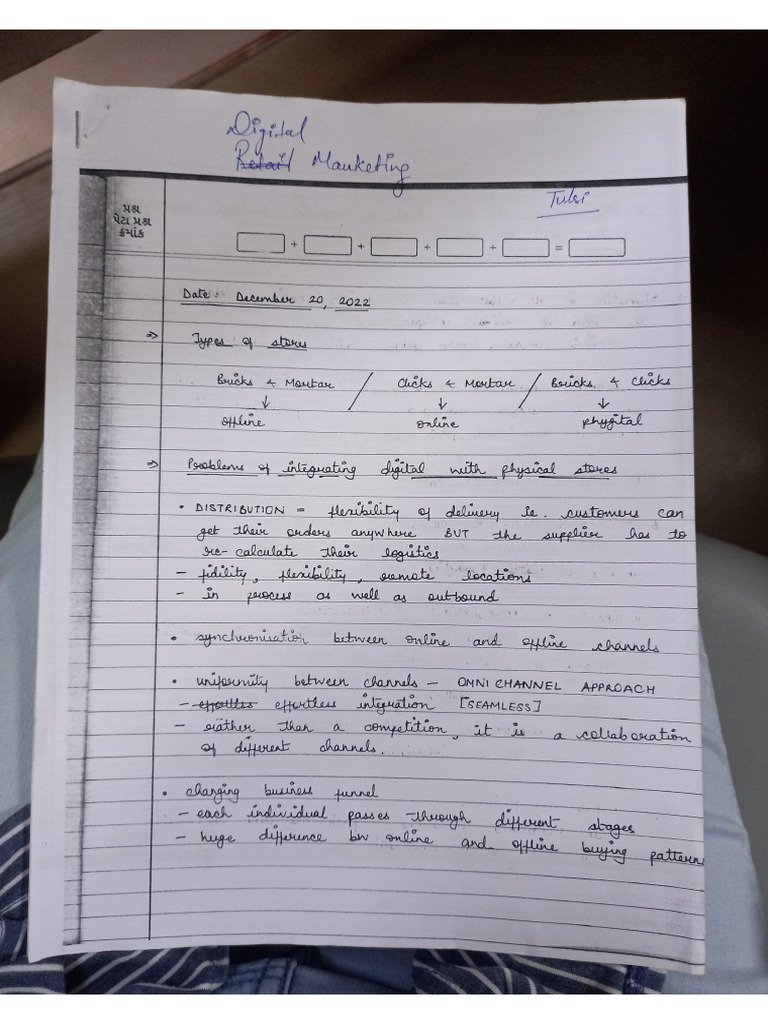 Digital
Retail Marketing
Tulsi
પ્રશ્ન
પેટા પ્રશ્ન
ક્રમાંક
+ + + + =
Date: December 20, 2022
⇒ Types of stores
Bricks & Mortar / Clicks & Mortar / Bricks & Clicks
↓ ↓ ↓
offline online phygital
⇒ Problems of integrating digital with physical stores
• DISTRIBUTION = flexibility of delivery ie. customers can
get their orders anywhere BUT the supplier has to
re-calculate their logistics
- fidility, flexibility, remote locations
- in process as well as outbound
• synchronisation between online and offline channels
• uniformity between channels - OMNI CHANNEL APPROACH
- effortles effortless integration [SEAMLESS]
- rather than a competition, it is a collaboration
of different channels.
• changing business funnel
- each individual passes through different stages
- huge difference bw online and offline buying pattern